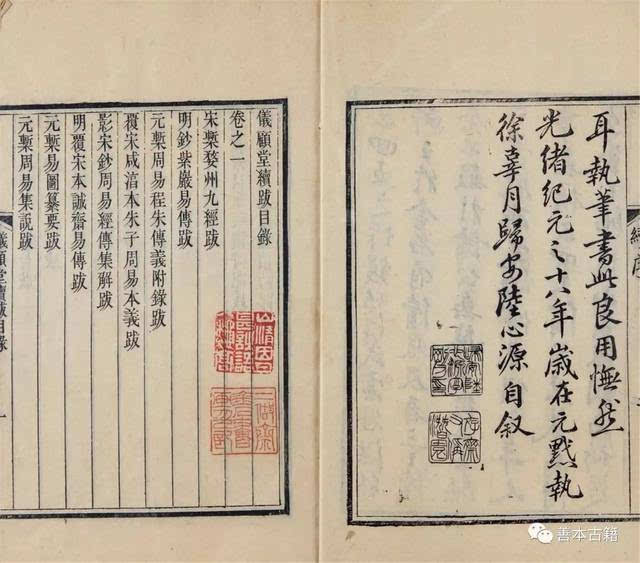 續序
耳執筆書此良用憮然
光緒紀元之十八年歲在元黓執
徐辜月歸安陸心源自叙
儀顧堂續跋目錄
卷之一
宋槧婺州九經跋
明鈔紫嚴易傳跋
元槧周易程朱傳義附錄跋
覆宋咸淳本朱子周易本義跋
影宋鈔周易經傳集解跋
明覆宋本誠齋易傳跋
元槧易圖纂要跋
元槧周易集說跋
儀顧堂續跋目錄 一
善本古籍